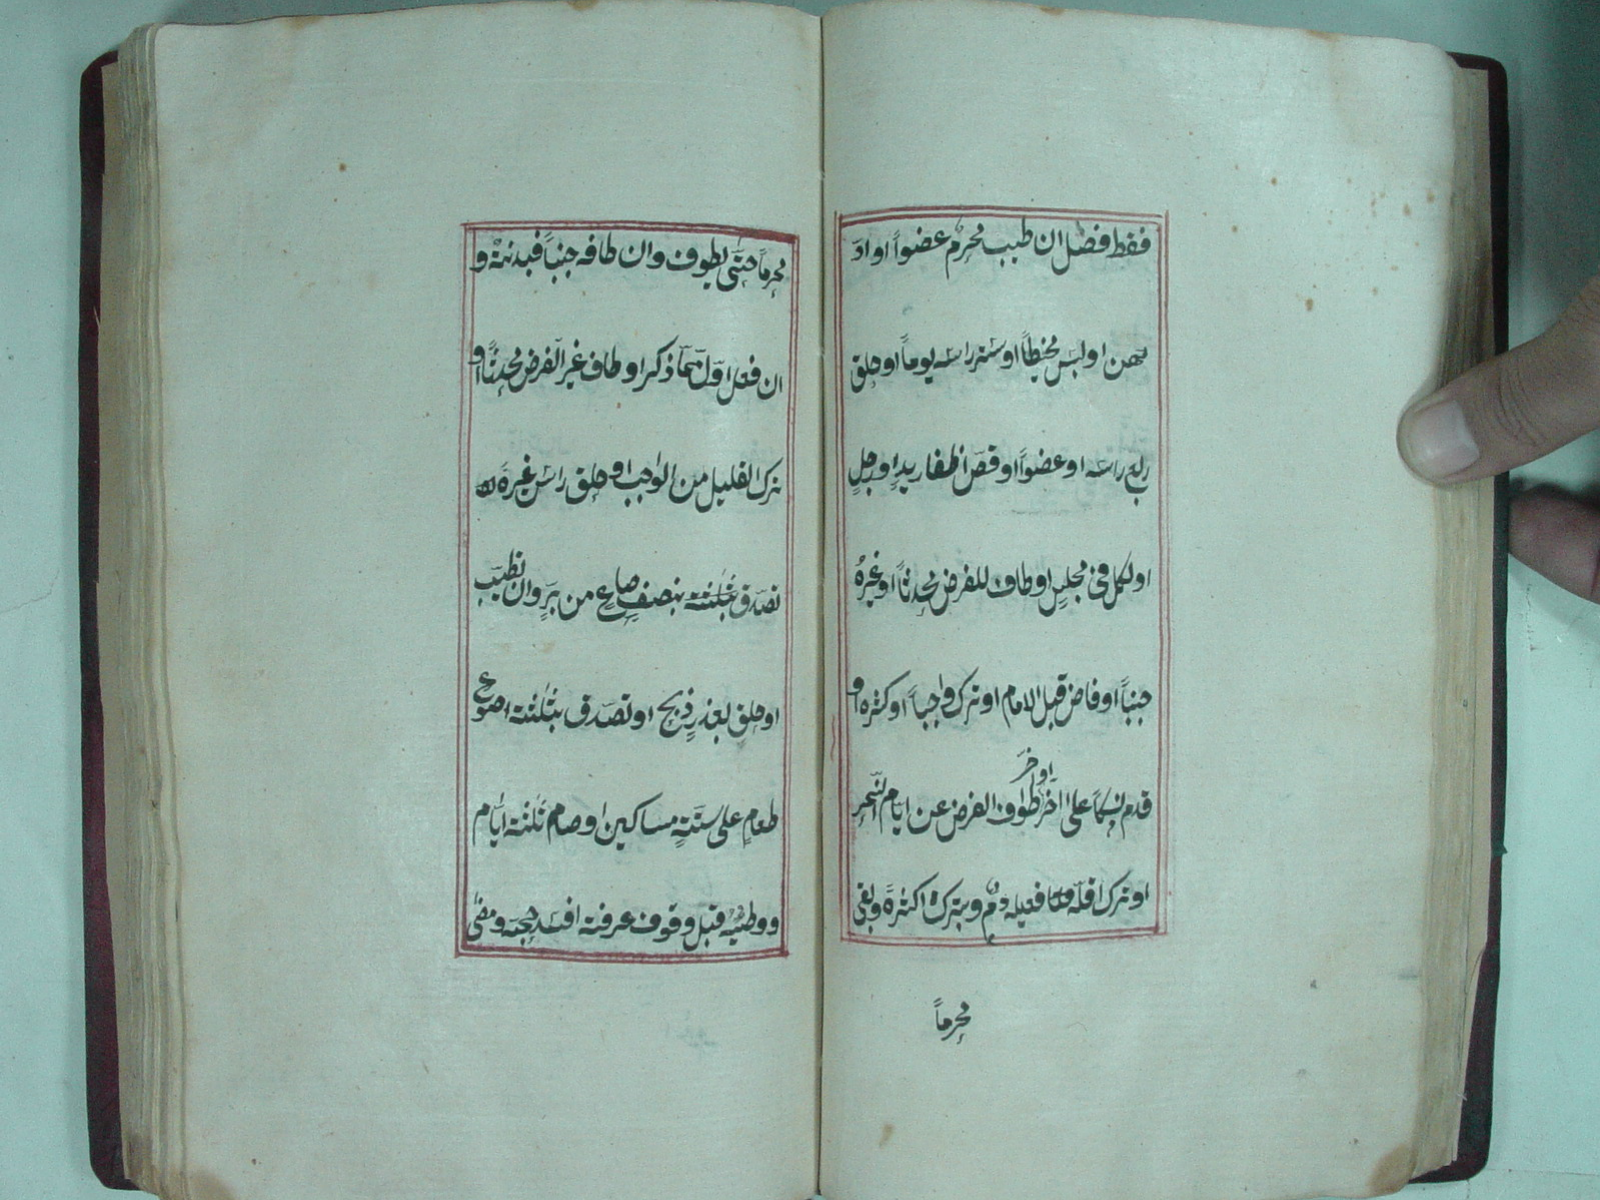 فقط فصل ان طيب محرم عضواً او ادّ
هن او لبس مخيطاً او ستر راسه يوماً او حلق
ربع راسه او عضواً او قصّ اظفار يدٍ او رجلٍ
او لكل في مجلسٍ او طاف للفرض محدثاً او غيرهُ
جنباً او فاض قبل الامام او ترك واجباً او كثره او
قدم نسكاً على اخر او اخّر طواف الفرض عن ايام النّحرِ
او ترك اقلّه فعليه دمٌ وبترك اكثرهَ وبقي
محرماً
محرماً حتّى يطوف وان طافه جنباً فبدنة و
ان فعل اوّل ممّا ذكر او طاف غير الفرض محدثاً او
ترك القليل من الواجب او حلق راس غيرهَ
تصدّق بنصفِ صاعٍ من برّ وان تطيّب
او حلق بعذرٍ ذبح او تصدّق بثلثة اصوعِ
طعامٍ على ستّةِ مساكين او صام ثلثة ايّام
ووطئه قبل وقوف عرفة افسد حجه ومضى